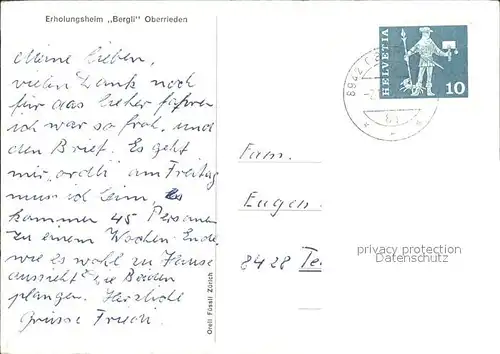 Erholungsheim „Bergli" Oberrieden
Meine Lieben,
vielen Dank noch
für das
ich war so froh, und
den Brief. Es geht
mir ordli am Freitag
muss ich heim, Es
kommen 45 Personen
zu einem Wochen-Ende,
wie es wohl zu Hause
aussieht? die Beiden
plangen. Herzliche
Grüsse Friedi.
Orell Füssli Zürich
HELVETIA
10
8942
Fam.
Eugen
8428 Te
privacy protection
Datenschutz